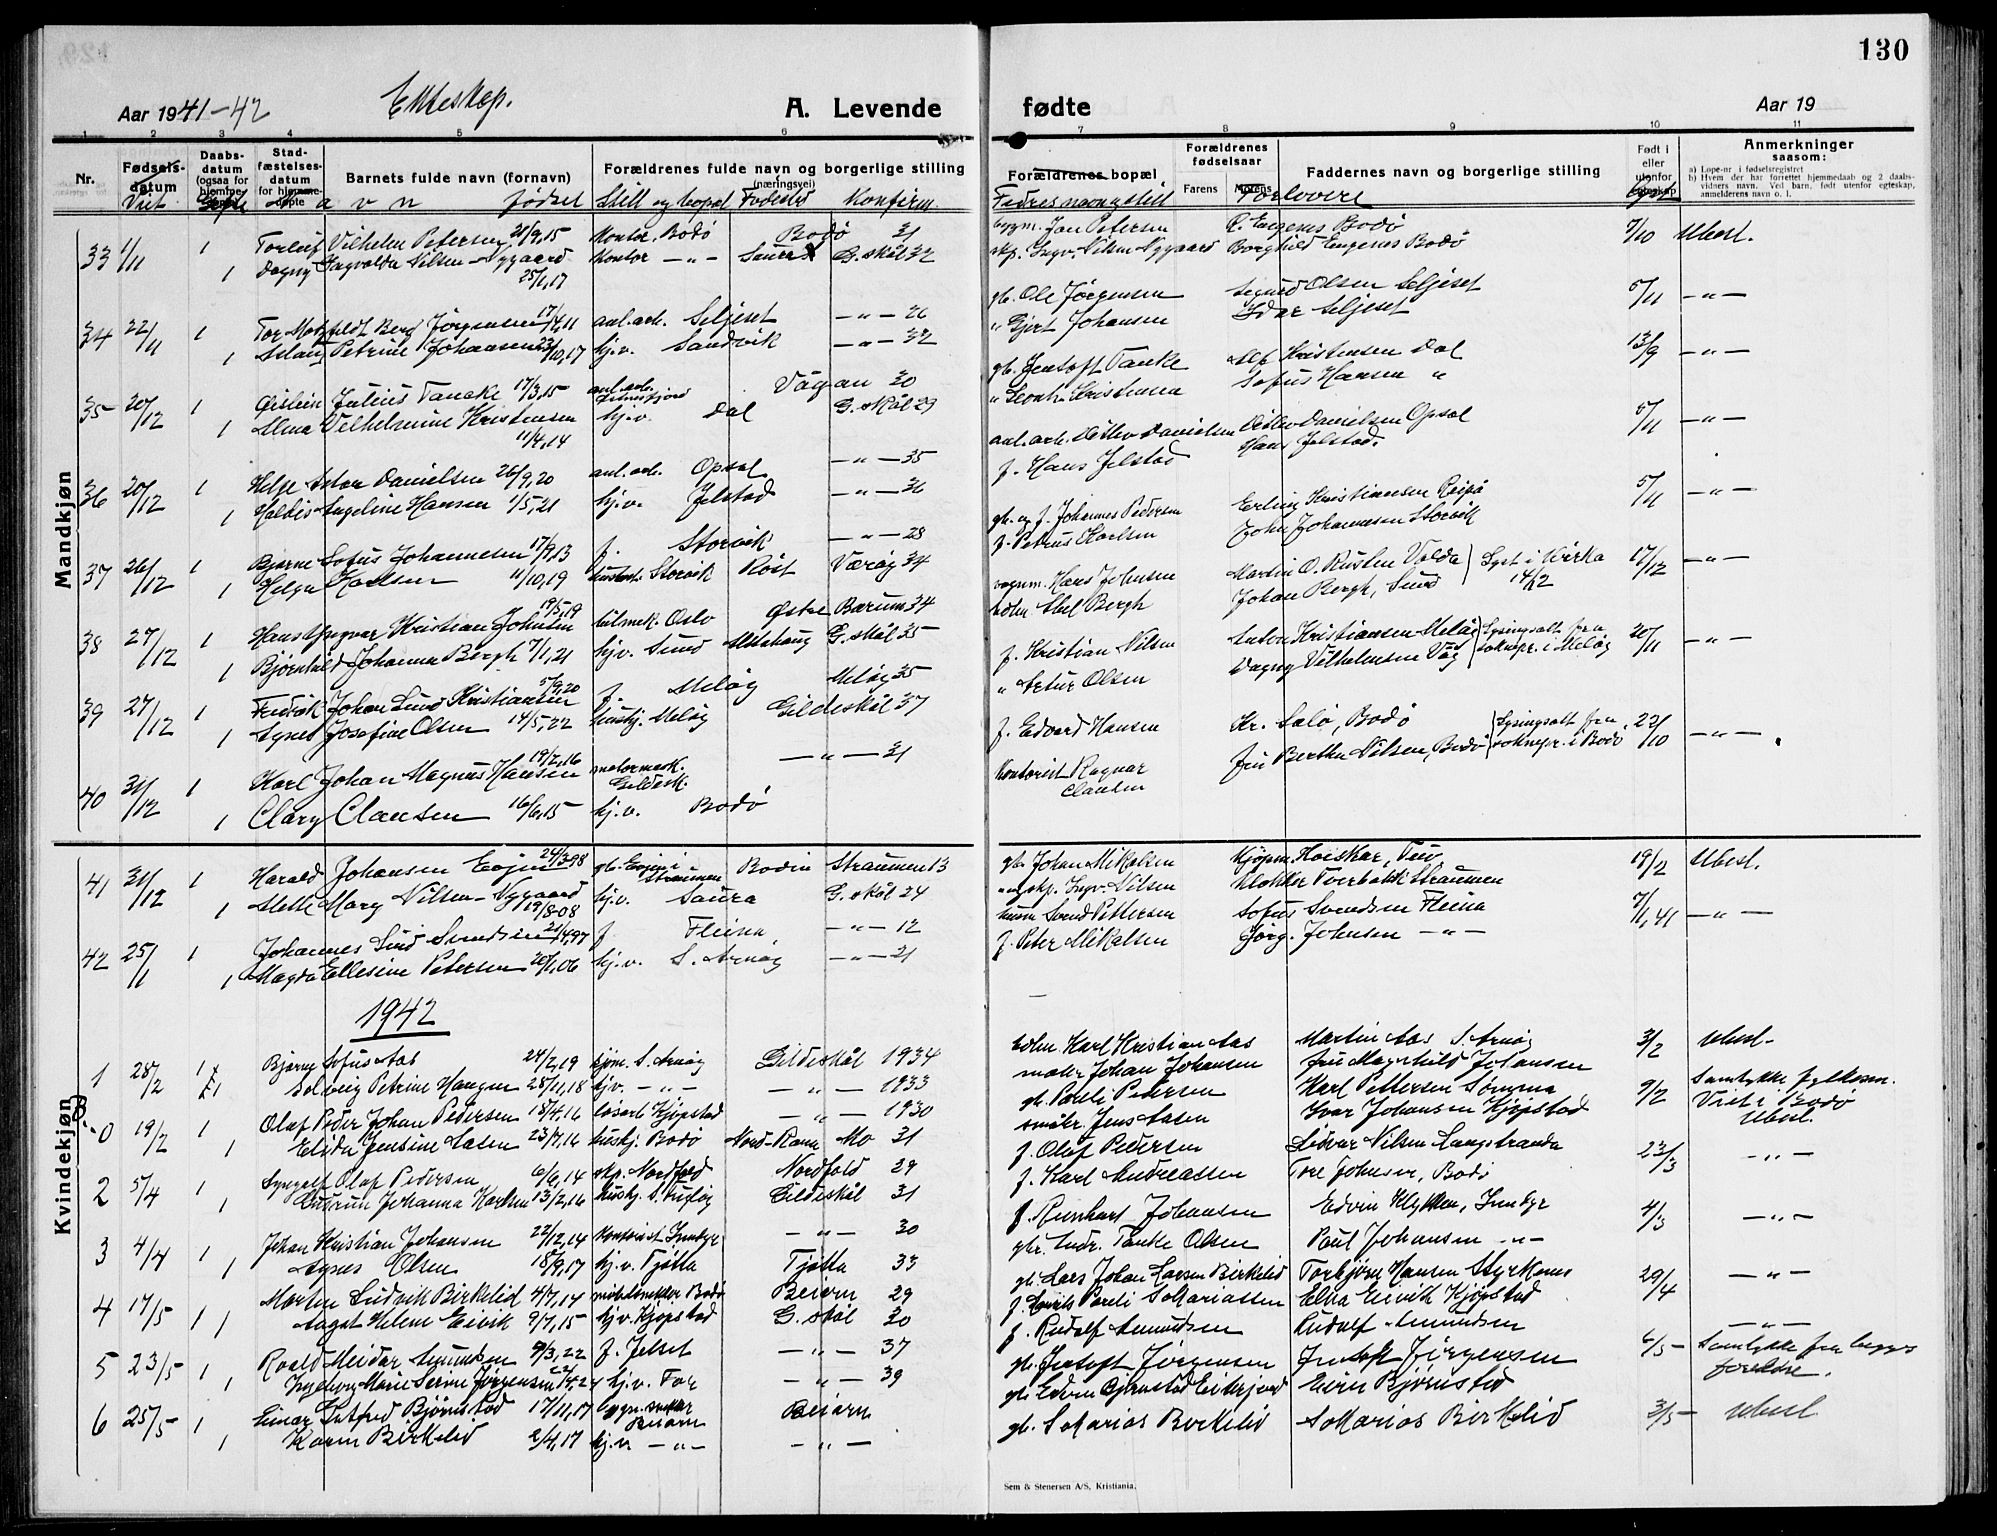 130
Aar 1941-42
Ekteskap.
A. Levende
fødte
Aar 19
1 2 3 4 5 6 7 8 9 10 11
Nr.
Fødsels-datum
Daabs-datum (ogsaa for hjemme-døpte
Stad-fæstelses-datum for hjemme-døpte
Barnets fulde navn (fornavn)
Forældrenes fulde navn og borgerlige stilling
(næringsvei)
Forældrenes bopæl
Forældrenes fødselsaar
Farens Morens
Faddernes navn og borgerlige stilling
Født i eller utenfor egteskap
Anmerkninger
saasom:
a) Løpe-nr i fødselsregistret
b) Hvem der har forrettet hjemmedaab og 2 daabsvidners navn. Ved barn, født utenfor egteskap, anmelderens navn o. l.
Viet Navn født Still og bopel Fødested Konfirm
Fedres navn og still Forlovere
Mandkjøn
33 1/11 1 Torleif Vilhelm Petersen 21/9,15 Kontor. Bodø Bodø 31 Jan Petersen R. Engenes Bodø 7/10 Ubesl.
1 Dagny Ingvalda Nilsen-Nygaard 25/1,17 Kontor -"- Saura G.skål 32 skp. Ingv. Nilsen Nygaard Borghild Engenes Bodø
34 22/11 1 Jørgensen 17/4,11 anl.arb. Seljeset -"- 26 gb. Ole Jørgensen Sigurd Olsen Seljeset 5/11 -"-
1 Petrine Johansen 23/10,17 hj.v. Sandvik -"- 32 " Gjert Johansen Idar Seljeset
35 20/12 1 Øistein Julius Tancke 17/3,15 anl.arb. Vågan 30 gb. Jentoft Tanke Alf Kristensen Dal 13/9 -"-
1 Alma Vilhelmine Kristensen 11/4,14 hj.v. Dal G.skål 29 " Leonh. Kristensen Sofus Hansen "
36 20/12 1 Helge Danielsen 26/9,20 anl.arb. Opsal -"- 35 anl.arb. Ditlev Danielsen Ditlev Danielsen Opsal 5/11 -"-
1 Haldis Angeline Hansen 1/5,21 hj.v. Jelstad -"- 36 f. Hans Jelstad Hans Jelstad.
37 26/12 1 Bjarne Sofus Johannesen 17/9,13 f. Storvik -"- 28 gb. og f. Johannes Pedersen Erling Kristiansen Reipå 5/11 -"-
1 Helga Karlsen 11/10,19 Storvik Røst Værøy 34 f. Petrus Karlsen John Johannesen Storvik
38 27/12 1 Hans Yngvar Kristian Johnsen 19/5,19 bilmek. Oslo Østre Bærum 34 Hans Johnsen Martin O. Rusten Valda Lyst i Kirka 14/12 17/12 -"-
1 Bjørnhild Johanna Bergh 7/1,21 hj.v. Sund G.skål 35 Abel Bergh Johan Bergh, Sund
39 27/12 1 Fredrik Johan Lund Kristiansen 5/9,20 f. Meløy Meløy 35 f. Kristian Nilsen Anton Kristiansen Meløy Lysingsatt. fra soknepr. i Meløy 20/11 -"-
1 Agnes Josefine Olsen 14/5,22 hushj. Meløy Gildeskål 37 " Artur Olsen Dagny Vilhelmsen Våg
40 31/12 1 Karl Johan Magnus Hansen 19/2,16 Gildesk. -"- 31 f. Edvard Hansen Kr. Salø, Bodø Lysingsatt fra soknepr. i Bodø 22/10 -"-
1 Clary Clausen 16/6,15 hj.v. Bodø Kontorist Ragnar Clausen fru Bertha Nilsen, Bodø
41 31/12 1 Harald Johansen Evjen 24/3-98 gb. Evjen i Straumen Bodin Straumen 13 gb. Johan Mikalsen 19/2 Ubesl.
1 Mette Mary Nilsen-Nygaard 19/8-08 hj.v. Saura G.skål 24 Ingv. Nilsen Klokker Tverbakk Straumen
42 25/1 1 Johannes Lind Svendsen 21/4,97 f. Fleina -"- 12 Svend Pettersen Sofus Svendsen Fleina 7/1,41 -"-
1 Magda Ellesine Petersen 20/1,06 hj.v. S. Arnøy -"- 21 f. Peter Mikalsen Jørg. Johnsen -"-
1942
Kvindekjøn
1 28/2 1 Bjarne Sofus Aas 24/2,19 S. Arnøy Gildeskål 1934 Karl Kristian Aas Martin Aas S. Arnøy 3/2 Ubesl.
1 Solveig Petrine Haugen 28/11,18 hj.v. -"- -"- 1933 Johan Johansen fru Magnhild Johansen
0 19/2 1 Olaf Peder Johan Pedersen 18/4,16 løsarb. Kjøpstad -"- 1930 gb. Pareli Petersen Karl Pettersen Sømma 9/2 Samtykke fylkesm. Viet i Bodø Ubesl.
1 Elida Jensine Aasen 23/7,16 hushj. Bodø Nord-Rana Mo 31 småbr. Jens Aasen Ivar Johansen Kjøpstad
2 5/4 1 Olaf Pedersen 6/6,14 skp. Nordfold Nordfold 29 f. Olaf Pedersen Nilsen Langstranda 23/3 -"-
1 Gudrun Johanna Karlsen 13/2,16 hushj. S. Fugløy Gildeskål 31 f. Karl Andreassen Tore Johnsen, Bodø
3 4/4 1 Johan Kristian Johansen 22/12,14 Kontorist Inndyr -"- 30 f. Reinhart Johansen Edvin Klykken, Inndyr 4/3 -"-
1 Agnes Olsen 18/9,17 hj.v. Tjøtta Tjøtta 33 gbr. Andr. Tanke Olsen Paul Johansen -"-
4 17/5 1 Morten Ludvik Birkelid 4/7,14 møbelsnekker Bodø Beiarn 29 gb. Lars Johan Larsen Birkelid Torbjørn Hansen 29/4 -"-
1 Aagot Helene Eivik 9/7,15 hj.v. Kjøpstad G.skål 30 f. Pareli Sakariassen Elna Eivik Kjøpstad
5 23/5 1 Roald Meidar Amundsen 9/3,22 f. Jelset -"- 37 f. Rudolf Amundsen Rudolf Amundsen 6/5 -"- Samtykke fra begges foreldre.
1 Ingeborg Marie Serine Jørgensen 2/4,24 hj.v. For -"- 39 gb. Jentoft Jørgensen Jentoft Jørgensen
6 25/5 1 Einar Bjørnstad 17/11,17 bygn.snekker Beiarn Beiarn gb. Edvin Bjørnstad Eiterjord Edvin Bjørnstad 3/5 Ubesl.
1 Karen Birkelid 2/4,17 hj.v. -"- -"- gb. Sakarias Birkelid Sakarias Birkelid
Sem & Stenersen A/S, Kristiania.